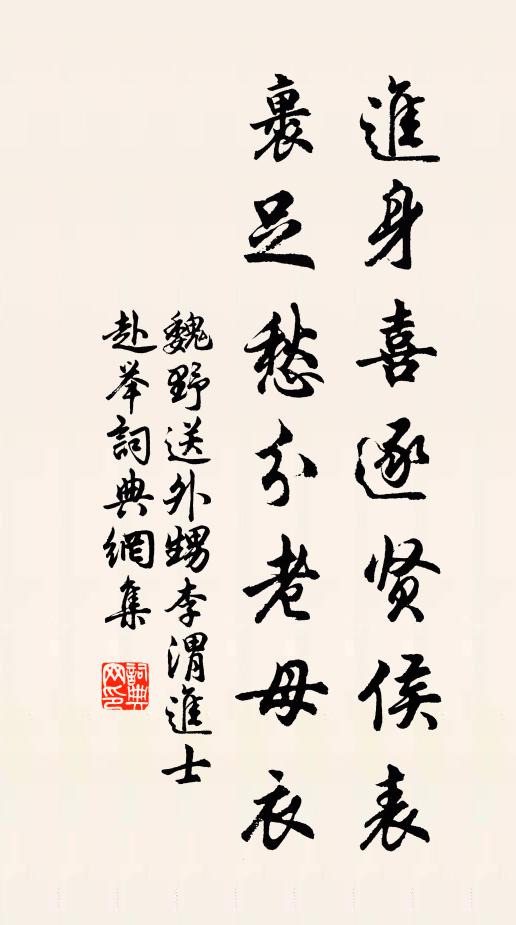 進身喜逐贤侯表
裹足愁分老母衣
魏野送外甥李渭進士
赴举詞典網集
詞典網印